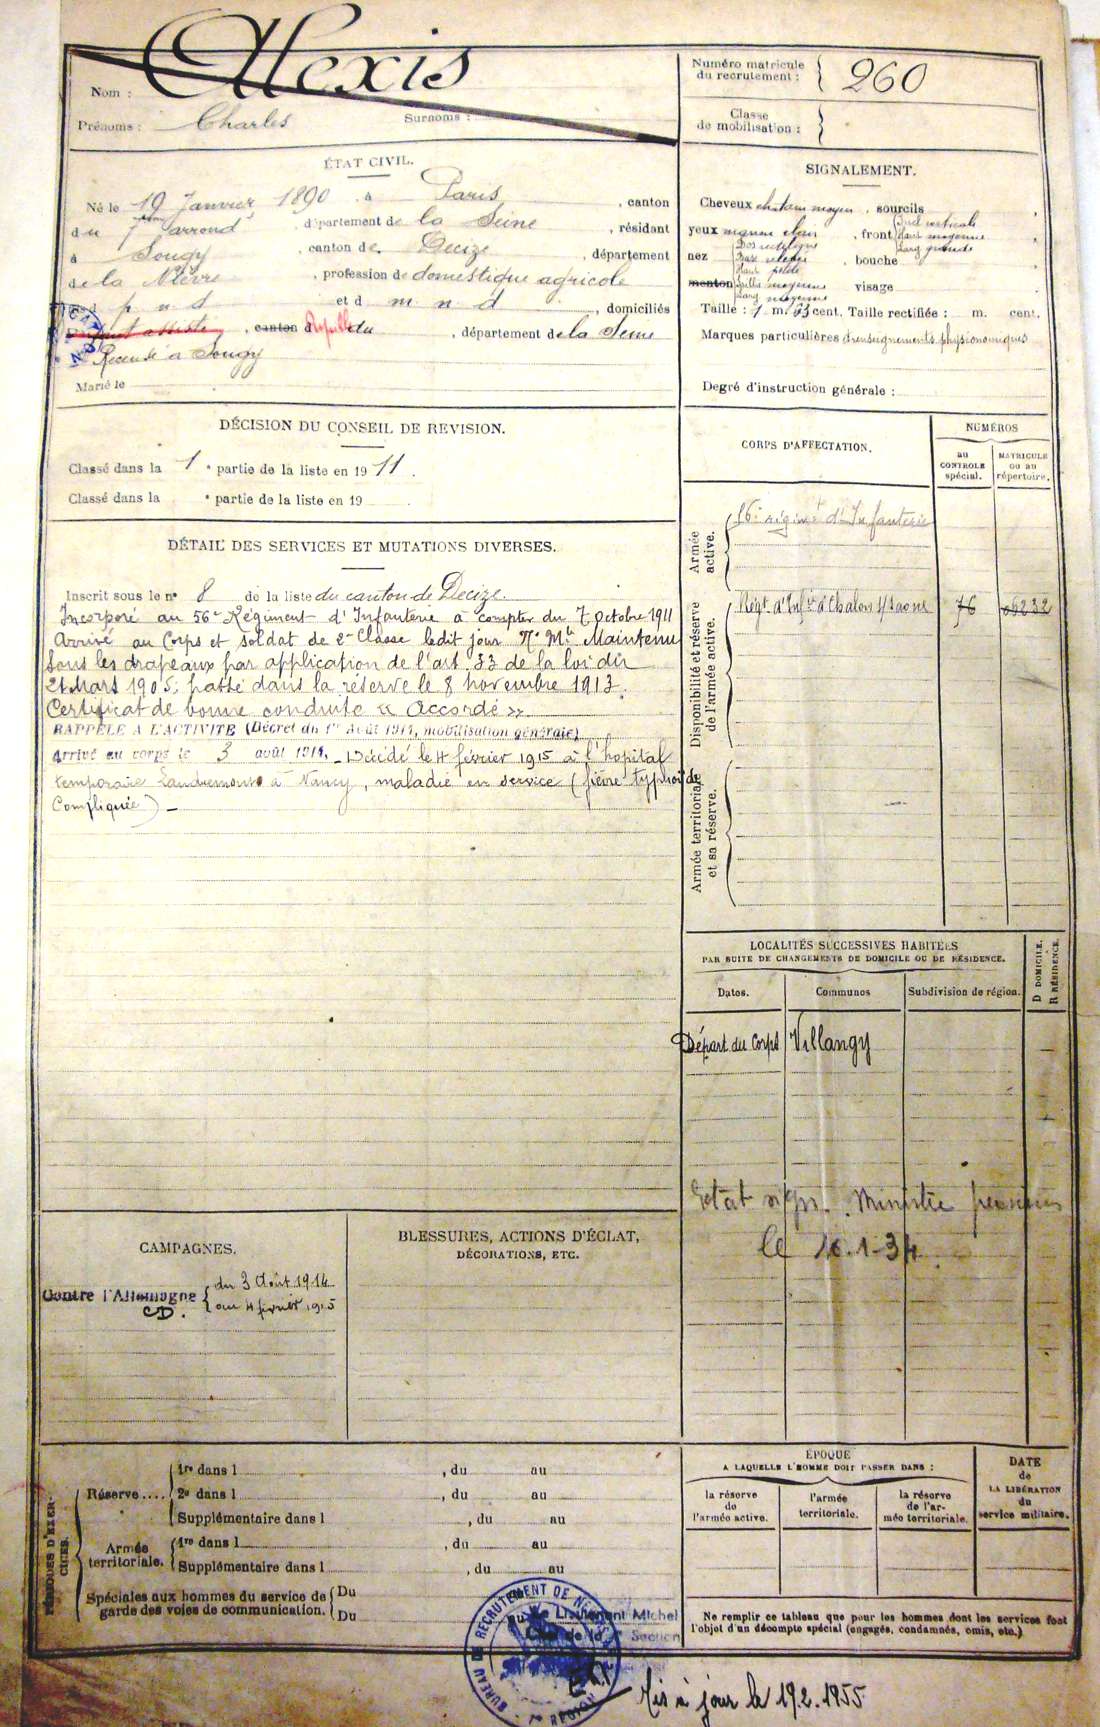 Nom : Alexis
Prénoms : Charles Surnoms :
Numéro matricule
du recrutement : 260
Classe
de mobilisation :
ÉTAT CIVIL.
Né le 19 Janvier 1890, à Paris, canton
du 7 arrondt, département de la Seine, résidant
à Sougy, canton de Decize, département
de la Nièvre, profession de domestique agricole
p n d et d m n d, domiciliés
canton d du, département de la Seine
Recensé à Sougy
Marié le
SIGNALEMENT.
Cheveux chatain moyen, sourcils
yeux marron clair, front
Incl verticale
Haut moyenne
Larg grande
nez
Dos rectiligne
Base relevée
Haut petite
Saillie moyenne
Larg moyenne
bouche
menton visage
Taille : 1 m. 63 cent. Taille rectifiée : m. cent.
Marques particulières d renseignements physionomiques
Degré d'instruction générale :
DÉCISION DU CONSEIL DE REVISION.
Classé dans la 1e partie de la liste en 1911.
Classé dans la e partie de la liste en 19
DÉTAIL DES SERVICES ET MUTATIONS DIVERSES.
Inscrit sous le no 8 de la liste du canton de Decize.
Incorporé au 56e Régiment d'Infanterie à compter du 7 Octobre 1911
Arrivé au Corps et soldat de 2e Classe ledit jour No Mle Maintenu
sous les drapeaux par application de l'art. 33 de la loi du
21 Mars 1905; passé dans la réserve le 8 novembre 1913.
Certificat de bonne conduite « Accordé »
RAPPELÉ A L'ACTIVITÉ (Décret du 1er Août 1914, mobilisation générale)
Arrivé au corps le 3 août 1914. - Décédé le 4 février 1915 à l'hopital
temporaire Landremont à Nancy, maladie en service (fièvre typhoïde
Compliquée) -
CORPS D'AFFECTATION.
NUMÉROS
au
CONTROLE
spécial.
MATRICULE
ou au
répertoire.
Armée
active.
56e régiment d'Infanterie
Disponibilité et réserve
de l'armée active.
Régt d'Infie d Chalon s/Saone 76 06232
Armée territoriale
et sa réserve.
LOCALITÉS SUCCESSIVES HABITÉES
PAR SUITE DE CHANGEMENTS DE DOMICILE OU DE RÉSIDENCE.
Dates. Communes Subdivision de région.
D DOMICILE.
R RÉSIDENCE.
Départ du Corps Villangy
Ministre pensions
le 16.1-34
CAMPAGNES.
Contre l'Allemagne
CD.
du 3 Août 1914
au 4 février 1915
BLESSURES, ACTIONS D'ÉCLAT,
DÉCORATIONS, ETC.
PÉRIODES D'EXER-
CICES.
Réserve ....
1re dans l , du au
2e dans l , du au
Supplémentaire dans l , du au
Armée
territoriale.
1re dans l , du au
Supplémentaire dans l , du au
Spéciales aux hommes du service de
garde des voies de communication.
Du
Du
ÉPOQUE
A LAQUELLE L'HOMME DOIT PASSER DANS :
la réserve
de
l'armée active.
l'armée
territoriale.
la réserve
de l'ar-
mée territoriale.
DATE
de
LA LIBÉRATION
du
service militaire.
Ne remplir ce tableau que pour les hommes dont les services font
l'objet d'un décompte spécial (engagés, condamnés, omis, etc.)
BUREAU DE RECRUTEMENT DE
RÉGION
Le Lieutenant Michel
Chef de la Section
Mis à jour le 19.2.1955